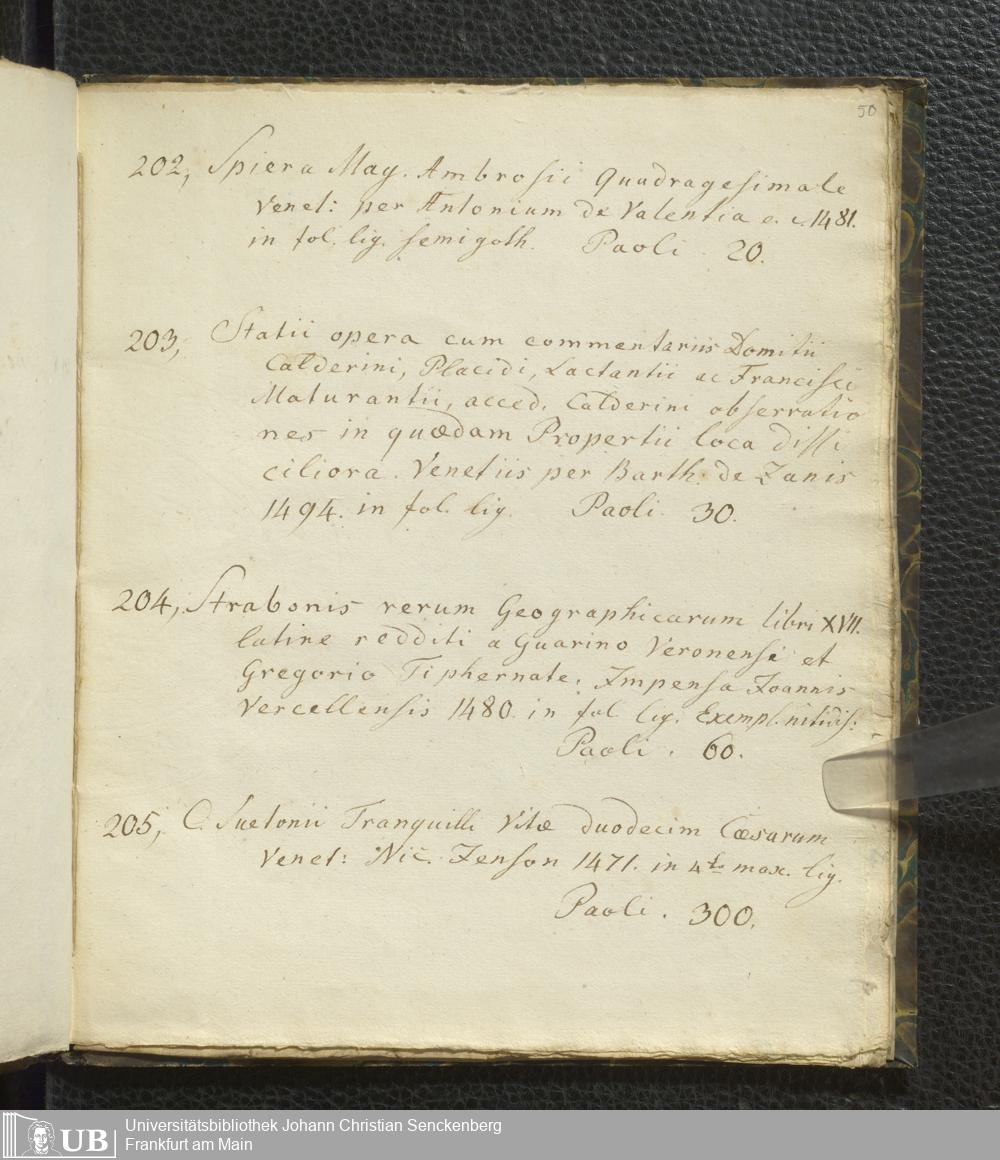 50
202, Spiera Mag. Ambrosii Quadragesimale
Venet: per Antonium de Valentia e. c. 1481.
in fol. lig. semigoth. Paoli . 20.
203, Statii opera cum commentariis Domitii
Calderini, Placidi, Lactantii ac Francisci
Maturantii, acced. Calderini observatio
nes in quædam Propertii loca diffi
ciliora. Venetiis per Barth. de Zanis
1494. in fol. lig. Paoli . 30.
204, Strabonis rerum Geographicarum libri XVII.
latine redditi a Guarino Veronensi et
Gregorio Tiphernate. Impensa Joannis
Vercellensis 1480. in fol lig. Exempl. nitidis:
Paoli . 60.
205, C. Suetonii Tranquilli Vitæ duodecim Cæsarum
Venet: Nic. Jenson 1471. in 4to max. lig.
Paoli . 300.
UB
Universitätsbibliothek Johann Christian Senckenberg
Frankfurt am Main